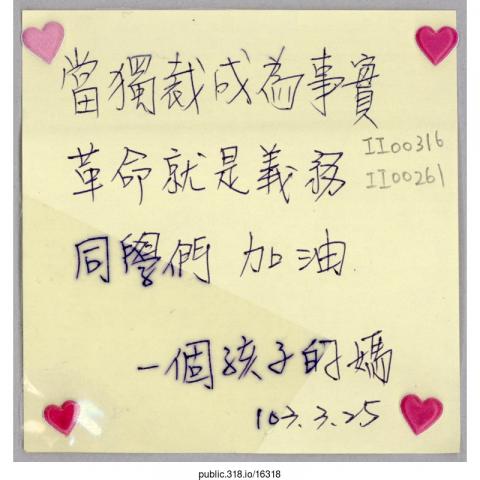 當獨裁成為事實
革命就是義務
II00316
II00261
同學們 加油
一個孩子的媽
103.3.25
public.318.io/16318